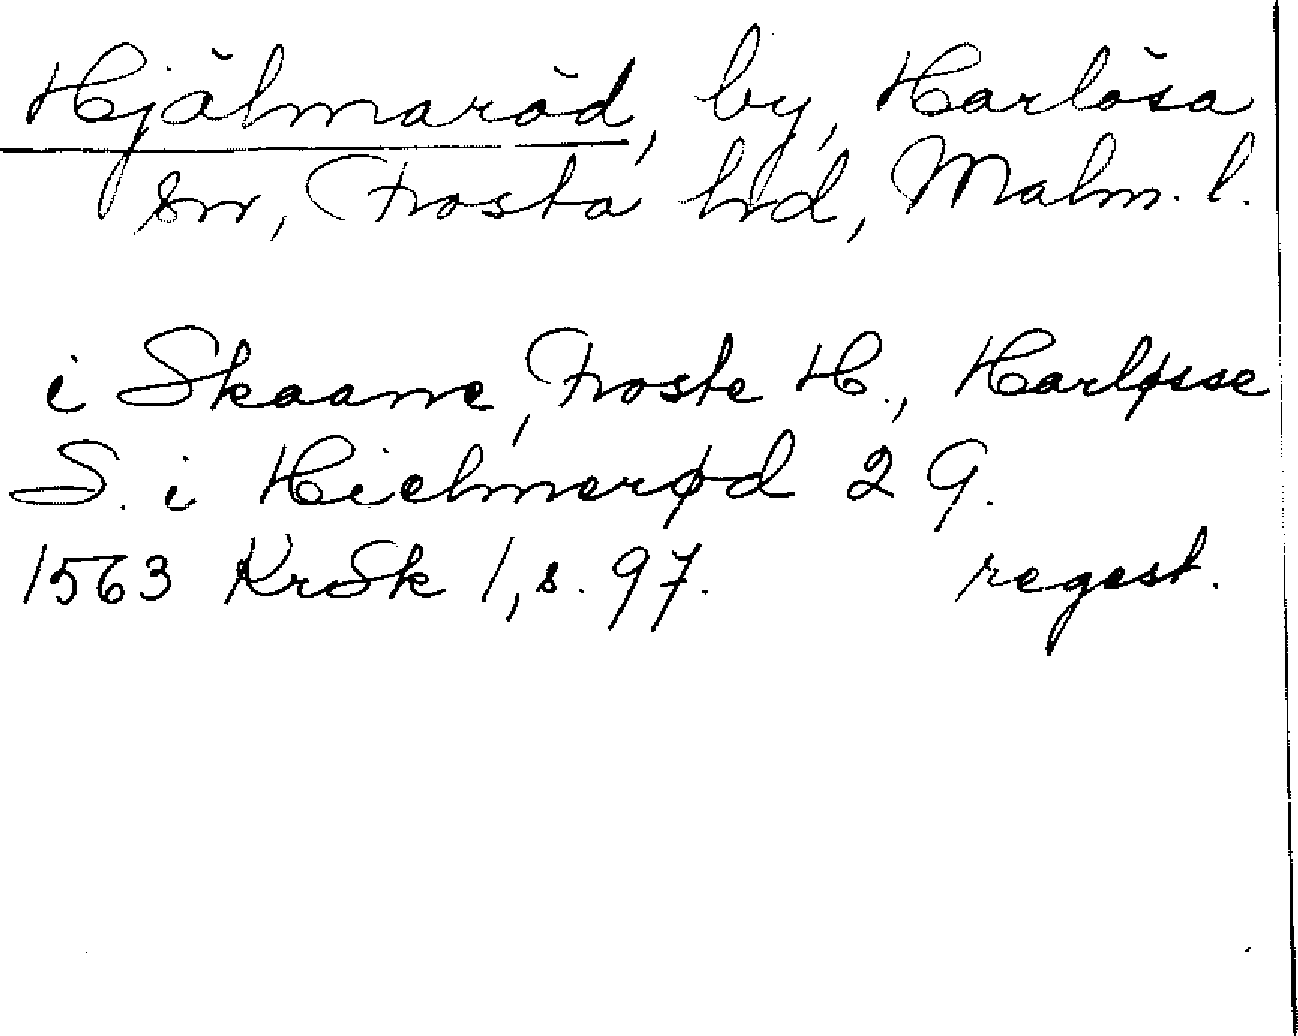 Hjälmaröd, by, Harlösa
sn, Frosta hd, Malm. l.
i Skaane, Froste H., Harløsse
S. i Hielmerød 2 G.
1563 KrSk 1, s. 97. regest.